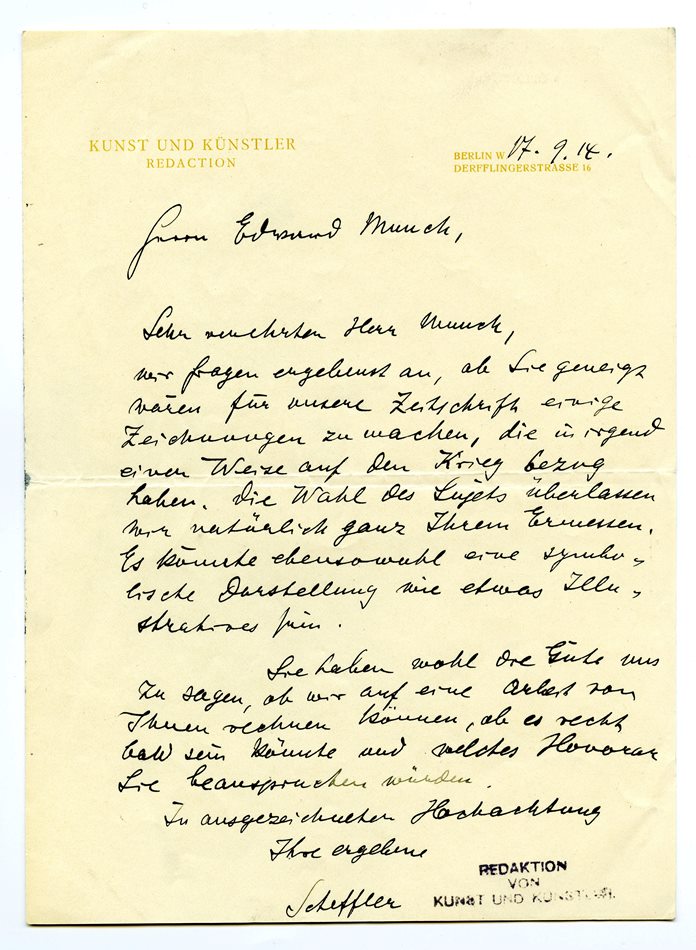 KUNST UND KÜNSTLER
REDACTION
BERLIN W 17. 9. 14.
DERFFLINGERSTRASSE 16
Herrn Edward Munch,
Sehr verehrten Herr Munch,
wir fragen ergebenst an, ob Sie geneigt
wären für unsere Zeitschrift einige
Zeichnungen zu machen, die in irgend
einer Weise auf den Krieg bezug
haben. Die Wahl des Sujets überlassen
wir natürlich ganz Ihrem Ermessen.
Es könnte ebensowohl eine symbo-
lische Darstellung wie etwas Illu-
stratives sein.
Sie haben wohl die Güte uns
zu sagen, ob wir auf eine Arbeit von
Ihnen rechnen können, ob es recht
bald sein könnte und welches Honorar
Sie beanspruchen würden.
In ausgezeichneter Hochachtung
Ihre ergebene
Scheffler
REDAKTION
VON
KUNST UND KÜNSTLER.